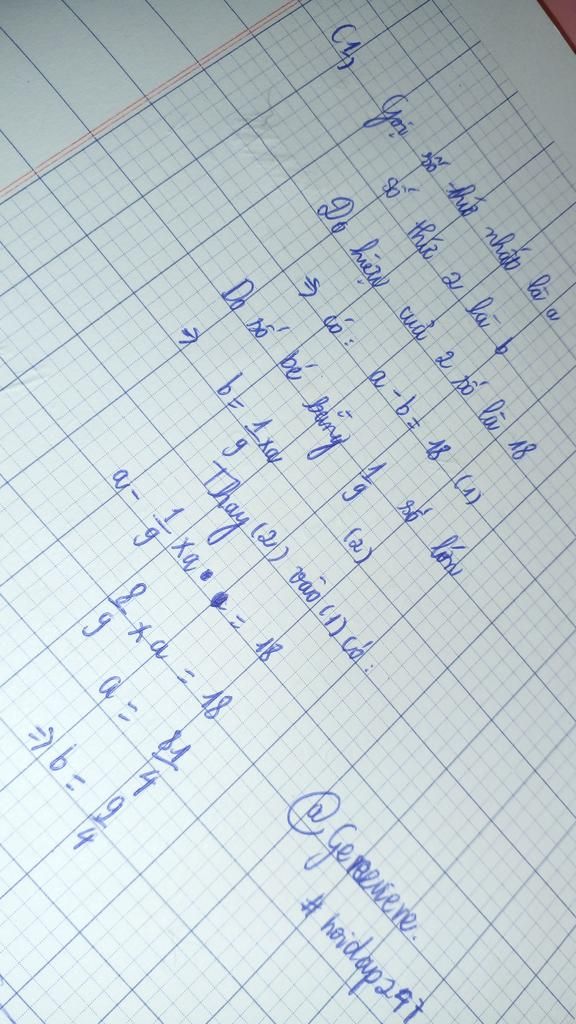 C1,
Gọi số thứ nhất là a
số thứ 2 là b
Do hiệu của 2 số là 18
=> có: a - b = 18 (1)
Do số bé bằng 1/9 số lớn
=> b = 1/9 x a (2)
Thay (2) vào (1) có:
a - 1/9 x a = 18
8/9 x a = 18
a = 81/4
=> b = 9/4
@Generere.
#hoidap247